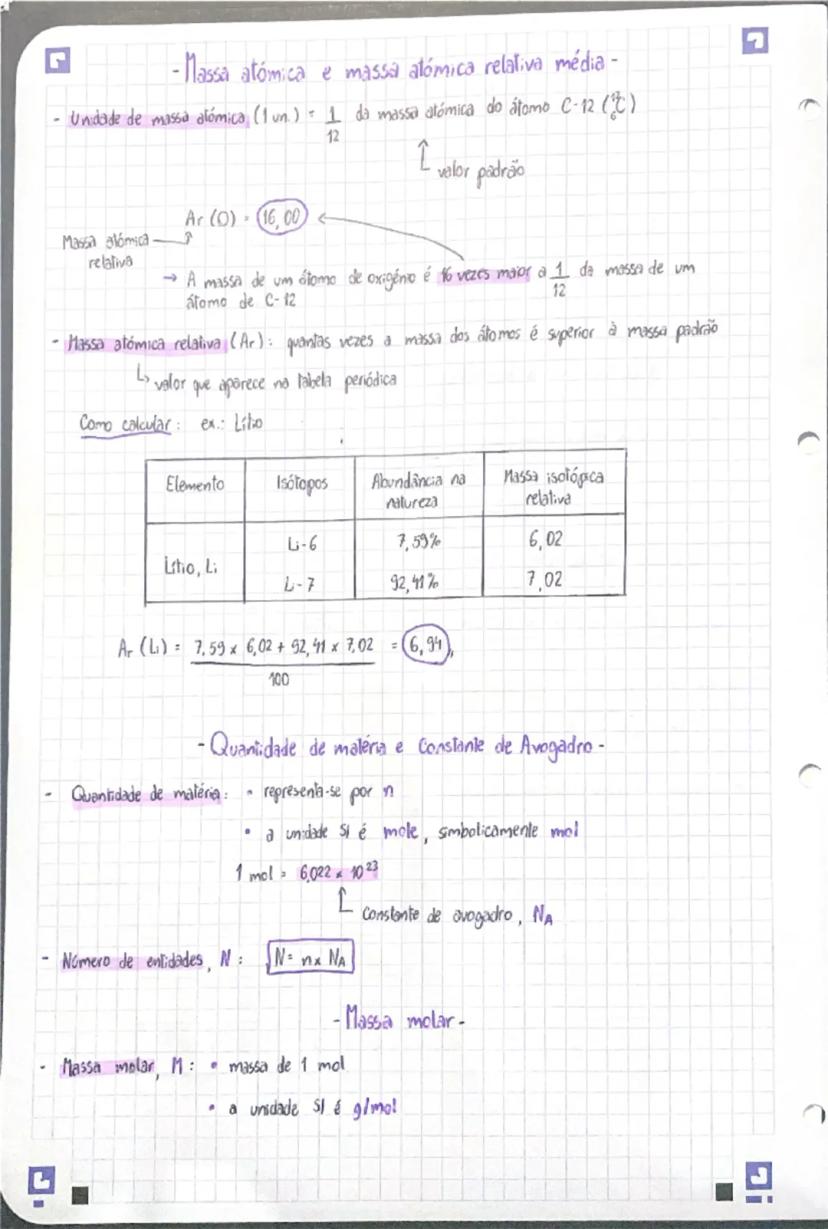 - Massa atómica e massa atómica relativa média -
- Unidade de massa atómica, (1 un.) = 1/12 da massa atómica do átomo C-12 (¹²₆C)
valor padrão
Ar (O) = 16,00
Massa atómica
relativa
→ A massa de um átomo de oxigénio é 16 vezes maior a 1/12 da massa de um
átomo de C-12
- Massa atómica relativa (Ar): quantas vezes a massa dos átomos é superior à massa padrão
↳ valor que aparece na tabela periódica
Como calcular: ex.: Lítio
Elemento Isótopos Abundância na natureza Massa isotópica relativa
Lítio, Li Li-6 7,59% 6,02
Li-7 92,41% 7,02
Ar (Li) = 7,59 x 6,02 + 92,41 x 7,02 = 6,94
100
- Quantidade de matéria e Constante de Avogadro -
- Quantidade de matéria: • representa-se por n
• a unidade SI é mole, simbolicamente mol
1 mol = 6,022 x 10²³
Constante de avogadro, NA
- Número de entidades, N: N = n x NA
- Massa molar -
- Massa molar, M: • massa de 1 mol
• a unidade SI é g/mol